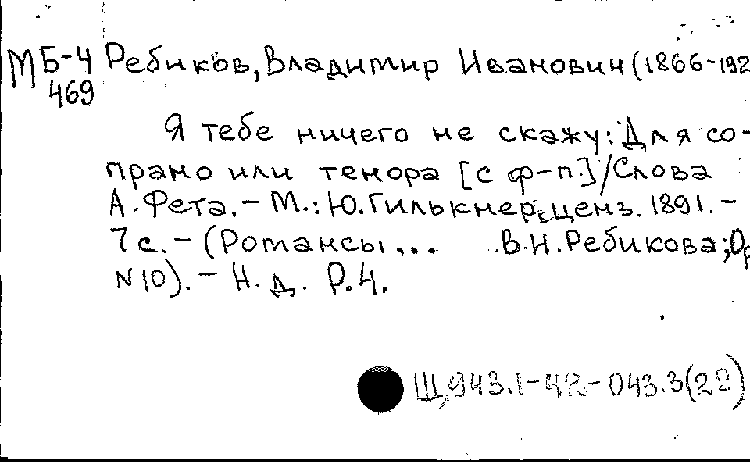 МБ-4 Ребиков, Владимир Иванович (1866-192
469
Я тебе ничего не скажу: Для со-
прано или тенора [с ф-п.] / Слова
А. Фета. - М.: Ю. Гилькнер, ценз. 1891. -
7 с. - (Романсы ... В. И. Ребикова; Ор
N 10). - Н. д. Р. 4.
Щ943.1-42-043.3(22)